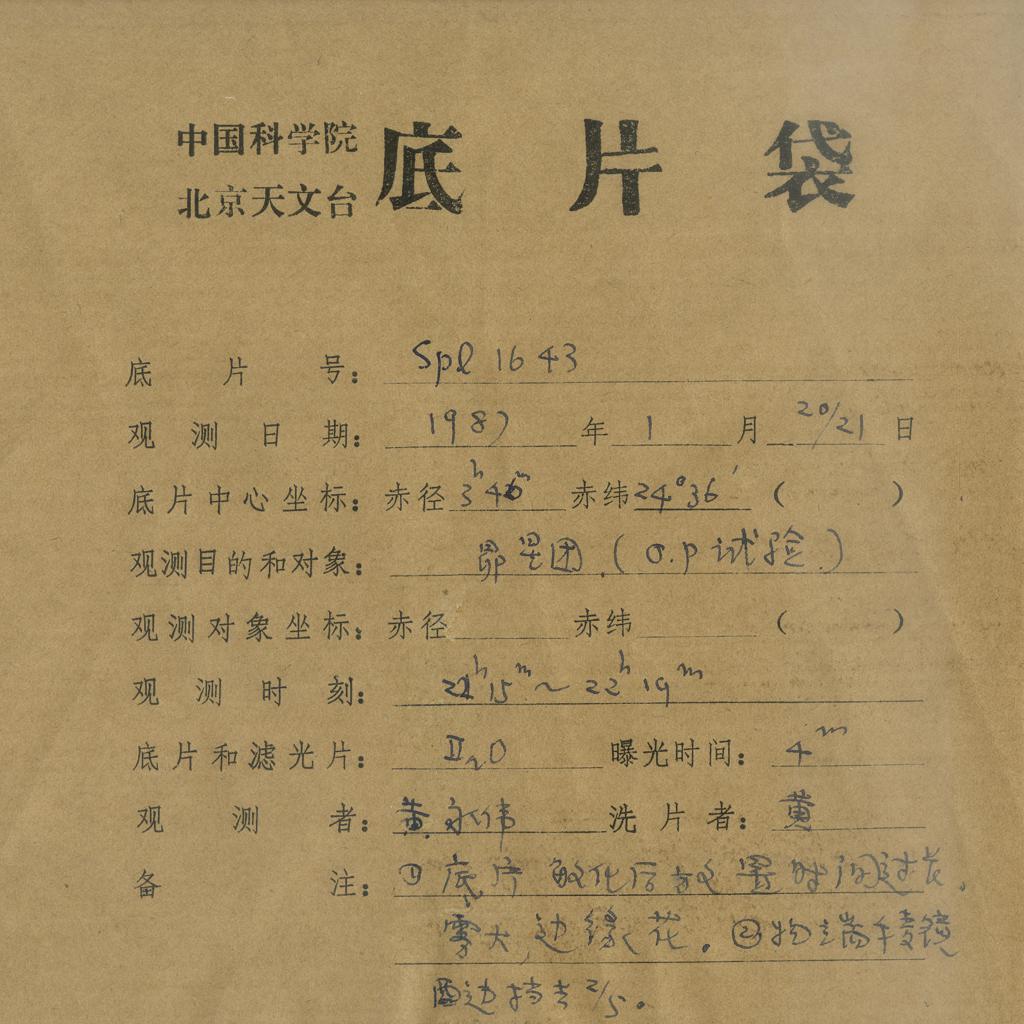 中国科学院
北京天文台
底片袋
底片号：Spl 1643
观测日期：1987年1月20/21日
底片中心坐标：赤径3ʰ46ᵐ 赤纬24°36′（ ）
观测目的和对象：昴星团.（O.P试验.）
观测对象坐标：赤径 赤纬 （ ）
观测时刻：22ʰ15ᵐ～22ʰ19ᵐ
底片和滤光片：ⅡaO 曝光时间：4ᵐ
观测者：黄永伟 洗片者：黄
备注：①底片敏化后放置时间过长，
雾大，边缘花。②物端棱镜
西边挡去2/5。